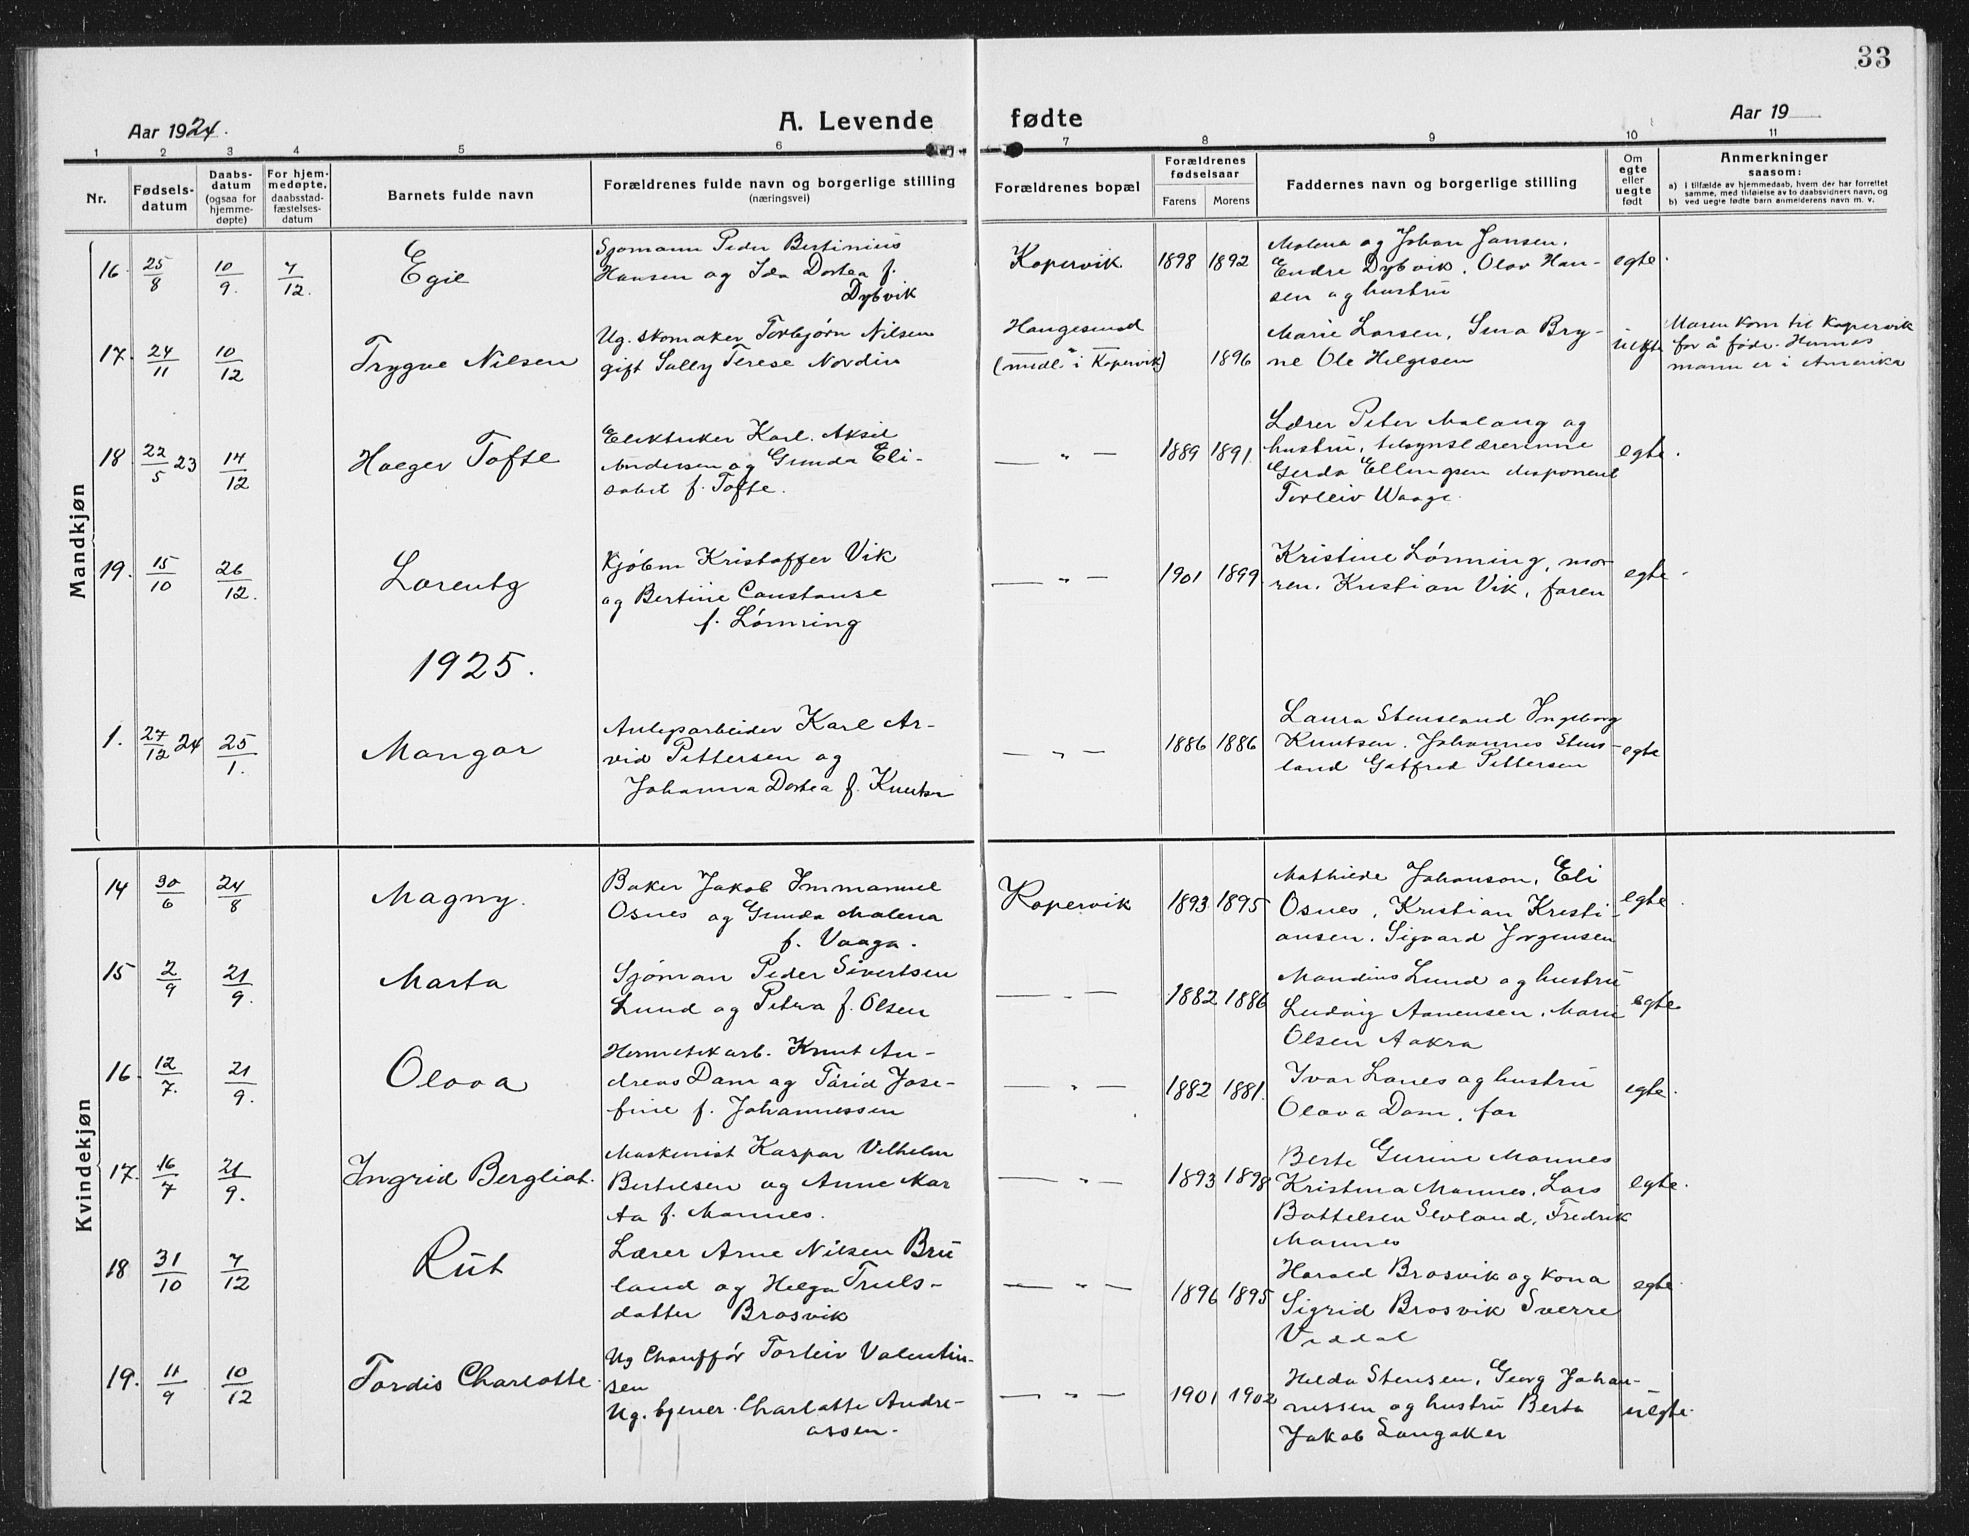 33
Aar 1924.
A. Levende fødte
Aar 19
1 2 3 4 5 6 7 8 9 10 11
Nr.
Fødsels-
datum
Daabs-
datum
(ogsaa for
hjemme-
døpte)
For hjem-
medøpte,
daabsstad-
fæstelses-
datum
Barnets fulde navn
Forældrenes fulde navn og borgerlige stilling
(næringsvei)
Forældrenes bopæl
Forældrenes
fødselsaar
Farens Morens
Faddernes navn og borgerlige stilling
Om
egte
eller
uegte
født
Anmerkninger
saasom:
a) i tilfælde av hjemmedaab, hvem der har forrettet
samme, med tilføielse av to daabsvidners navn, og
b) ved uegte fødte barn anmelderens navn m. v.
Mandkjøn
16 25/8 10/9. 7/12. Egil
Sjømann Peder Bertinius
Hansen og Ida Dortea f.
Dybvik
Kopervik 1898 1892
Malena og Johan Jansen,
Endre Dybvik, Olav Han-
sen og hustru
egte.
17. 24/11 10/12 Trygve Nilsen
Ug. skomaker Torbjørn Nilsen
gift Sally Terese Nordin
Haugesund
(midl. i Kopervik)
1896
Marie Larsen, Sina Bry-
ne Ole Helgesen
uekte
Moren kom til Kopervik
for å føde. Hennes
mann er i Amerika
18 22/5 23 14/12 Holger Tofte
Elektriker Karl Aksel
Andersen og Gunda Eli-
sabet f. Tofte.
— " — 1889 1891.
Lærer Peter Malang og
hustru, tilsynslærerinne
Gerda Ellingsen disponent
Torleiv Waage.
egte.
19. 15/10 26/12. Lorentz
Kjøbm Kristoffer Vik
og Bertine Constanse
f. Lønning
— " — 1901 1899
Kristine Lønning, mo-
ren, Kristian Vik, faren
egte.
1925.
1. 27/12 24 25/1. Mangor
Anlegsarbeider Karl Ar-
vid Pettersen og
Johanna Dortea f. Knutsen
— " — 1886 1886
Laura Stensland Ingeborg
Knutsen. Johannes Stens-
land Gotfred Pettersen
egte
Kvindekjøn
14 30/6 24/8 Magny.
Baker Jakob Immanuel
Osnes og Gunda Malena
f. Vaaga.
Kopervik 1893 1895
Mathilde Johanson, Eli
Osnes, Kristian Kristi-
ansen. Sigvard Jørgensen
egte.
15 2/9 21/9. Marta
Sjøman Peder Sivertsen
Lund og Petra f. Olsen
— " — 1882 1886
Mandius Lund og hustru
Ludvig Aanensen, Marie
Olsen Aakra
egte
16. 12/7. 21/9. Olava
Hermetikarb. Knut An-
dreas Dam og Tarid Jose-
fine f. Johannessen
— " — 1882 1881.
Ivar Lanes og hustru
Olava Dam, far
egte.
17. 16/7 21/9. Ingrid Bergliot.
Maskinist Kaspar Vilhelm
Bertelsen og Anne Mar
ta f. Mannes.
— " — 1893 1898
Berte Gurine Mannes
Kristina Mannes, Lars
Bottelsen Sevland, Fredrik
Mannes
egte.
18 31/10 7/12 Rut
Lærer Arne Nilsen Bru
land og Helga Truls-
datter Brosvik
— " — 1896 1895
Harald Brosvik og kona
Sigrid Brosvik Sverre
Viddal
egte.
19. 11/9 10/12 Tordis Charlotte.
Ug Chauffør Torleiv Valentin-
sen
Ug. tjener. Charlotte Andre-
assen.
— " — 1901 1902
Helda Stensen, Georg Johan-
nessen og hustru Berta
Jakob Langaker
uegte.